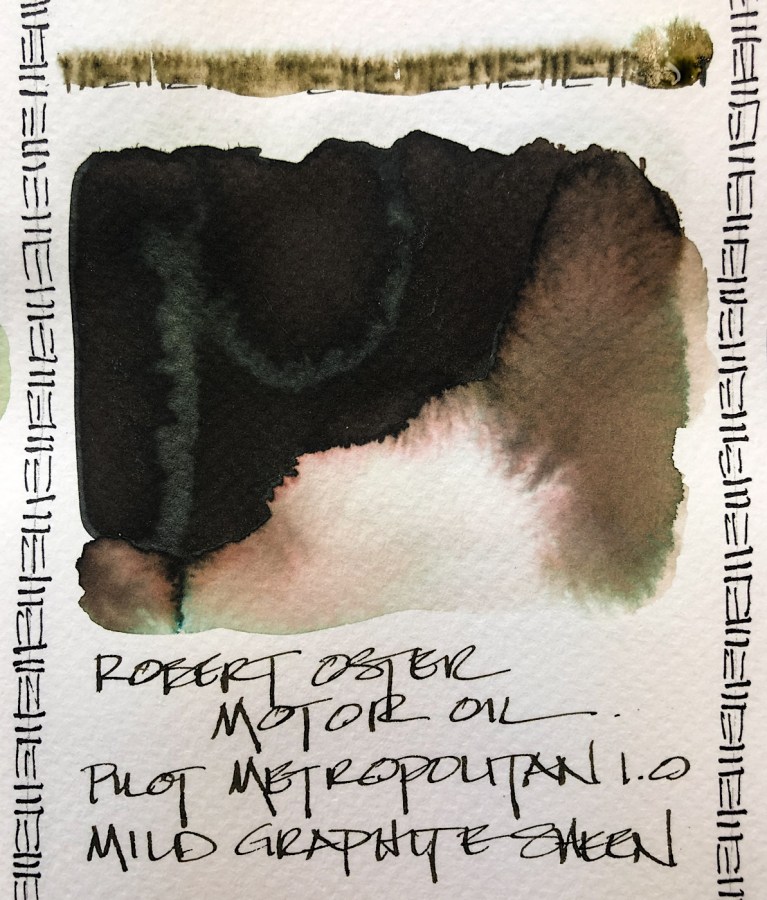 ROBERT OSTER
MOTOR OIL.
PILOT METROPOLITAN 1.0
MILD GRAPHITE SHEEN